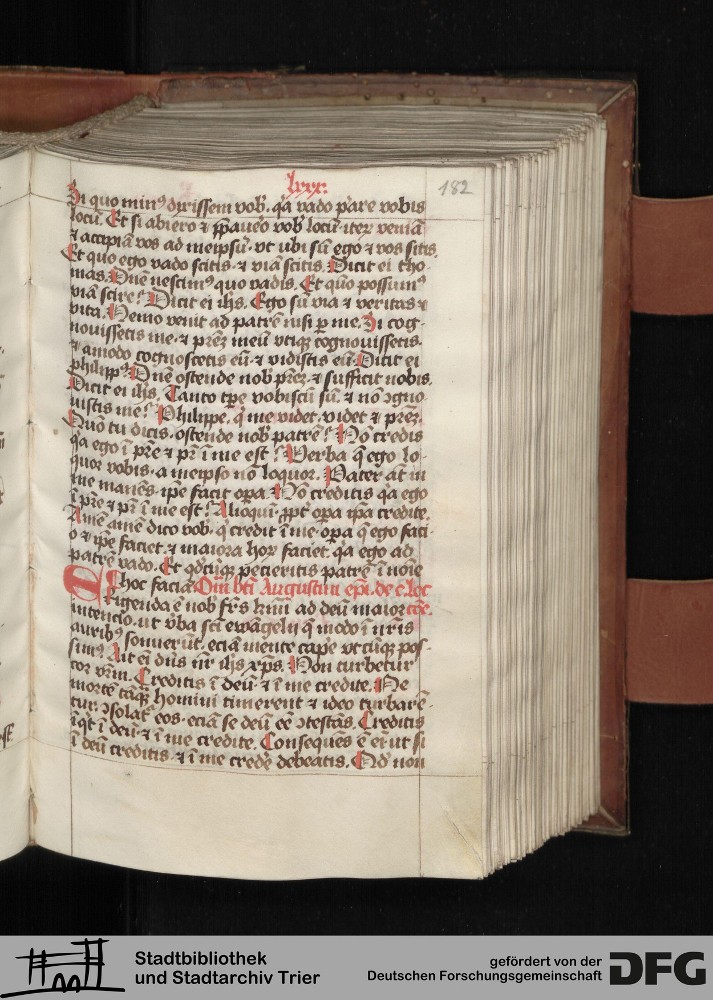 lxxx.
182
Si quo min⁹ dixissem vob̄. q̄a vado p̄are vobis
locū. Et si abiero ⁊ p̄pavero vob̄ locū. iterū veniā
⁊ accipiā vos ad meipsū. vt ubi sū ego ⁊ vos sitis.
Et quo ego vado scitis. ⁊ viā scitis. Dicit ei tho-
mas. Dn̄e nescim⁹ quo vadis. Et quo possum⁹
viā scire? Dicit ei ih̄s. Ego sū via ⁊ veritas ⁊
vita. Nemo venit ad patrē nisi ꝑ me. Si cog-
novissetis me. ⁊ p̄rem meū vtiqꝫ cognovissetis.
⁊ amodo cognoscetis eū. ⁊ vidistis eū. Dicit ei
philipp⁹. Dn̄e ostende nob̄ p̄rem. ⁊ sufficit nobis.
Dicit ei ih̄s. Tanto tp̄e vobiscū sū. ⁊ nō ꝯgno-
vistis me? Philippe. q̄ me videt. videt ⁊ p̄rem.
Quō tu dicis. ostende nob̄ patrē? Nō credis
q̄a ego ī p̄re ⁊ pr̄ ī me est? Verba q̄ ego lo-
quor vobis. a meipso nō loquor. Pater aūt in
me manēs. ip̄e facit op̄a. Nō creditis q̄a ego
ī p̄re ⁊ pr̄ ī me est? Alioqui. ꝓpt̄ op̄a ip̄a credite.
Amē amē dico vob̄. q̄ credit ī me. op̄a q̄ ego faci-
o ⁊ ip̄e faciet. ⁊ maiora hor̄ faciet. q̄a ego ad
patrē vado. Et qd̄cūqꝫ petieritis patrē ī noīe
hoc faciā. Om̄ bt̄i Augustini ep̄i. de e. loc
Erigenda ē nob̄ fr̄s km̄i ad deū maior cōe.
intencio. ut v̄ba sc̄i ewāgelii q̄ modo ī nr̄is
aurib⁹ sonuerūt. eciā mente cape vtcūqꝫ pos-
sim⁹. Ait eī dn̄s nr̄ ih̄s xp̄s. Non turbetur
cor vr̄m. Creditis ī deū. ⁊ ī me credite. Ne
mortē tāqꝫ homini timerent ⁊ ideo turbarē-
tur. ꝯsolat̄ eos. eciā se deū eē ꝯtestās. Creditis
īqt ī deū. ⁊ ī me credite. Consequēs ē eī ut si
ī deū creditis. ⁊ ī me crede debeatis. Qd̄ non
Stadtbibliothek
und Stadtarchiv Trier
gefördert von der
Deutschen Forschungsgemeinschaft
DFG